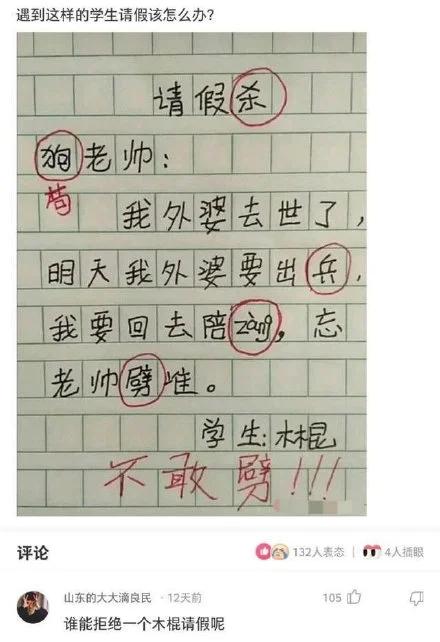 遇到这样的学生请假该怎么办?
请假杀
狗老帅:
苟
我外婆去世了,
明天我外婆要出兵,
我要回去陪zàng,忘
老帅劈准。
学生:木棍
不敢劈!!!
评论
132人表态
4人插眼
山东的大大滴良民 · 12天前
105
谁能拒绝一个木棍请假呢